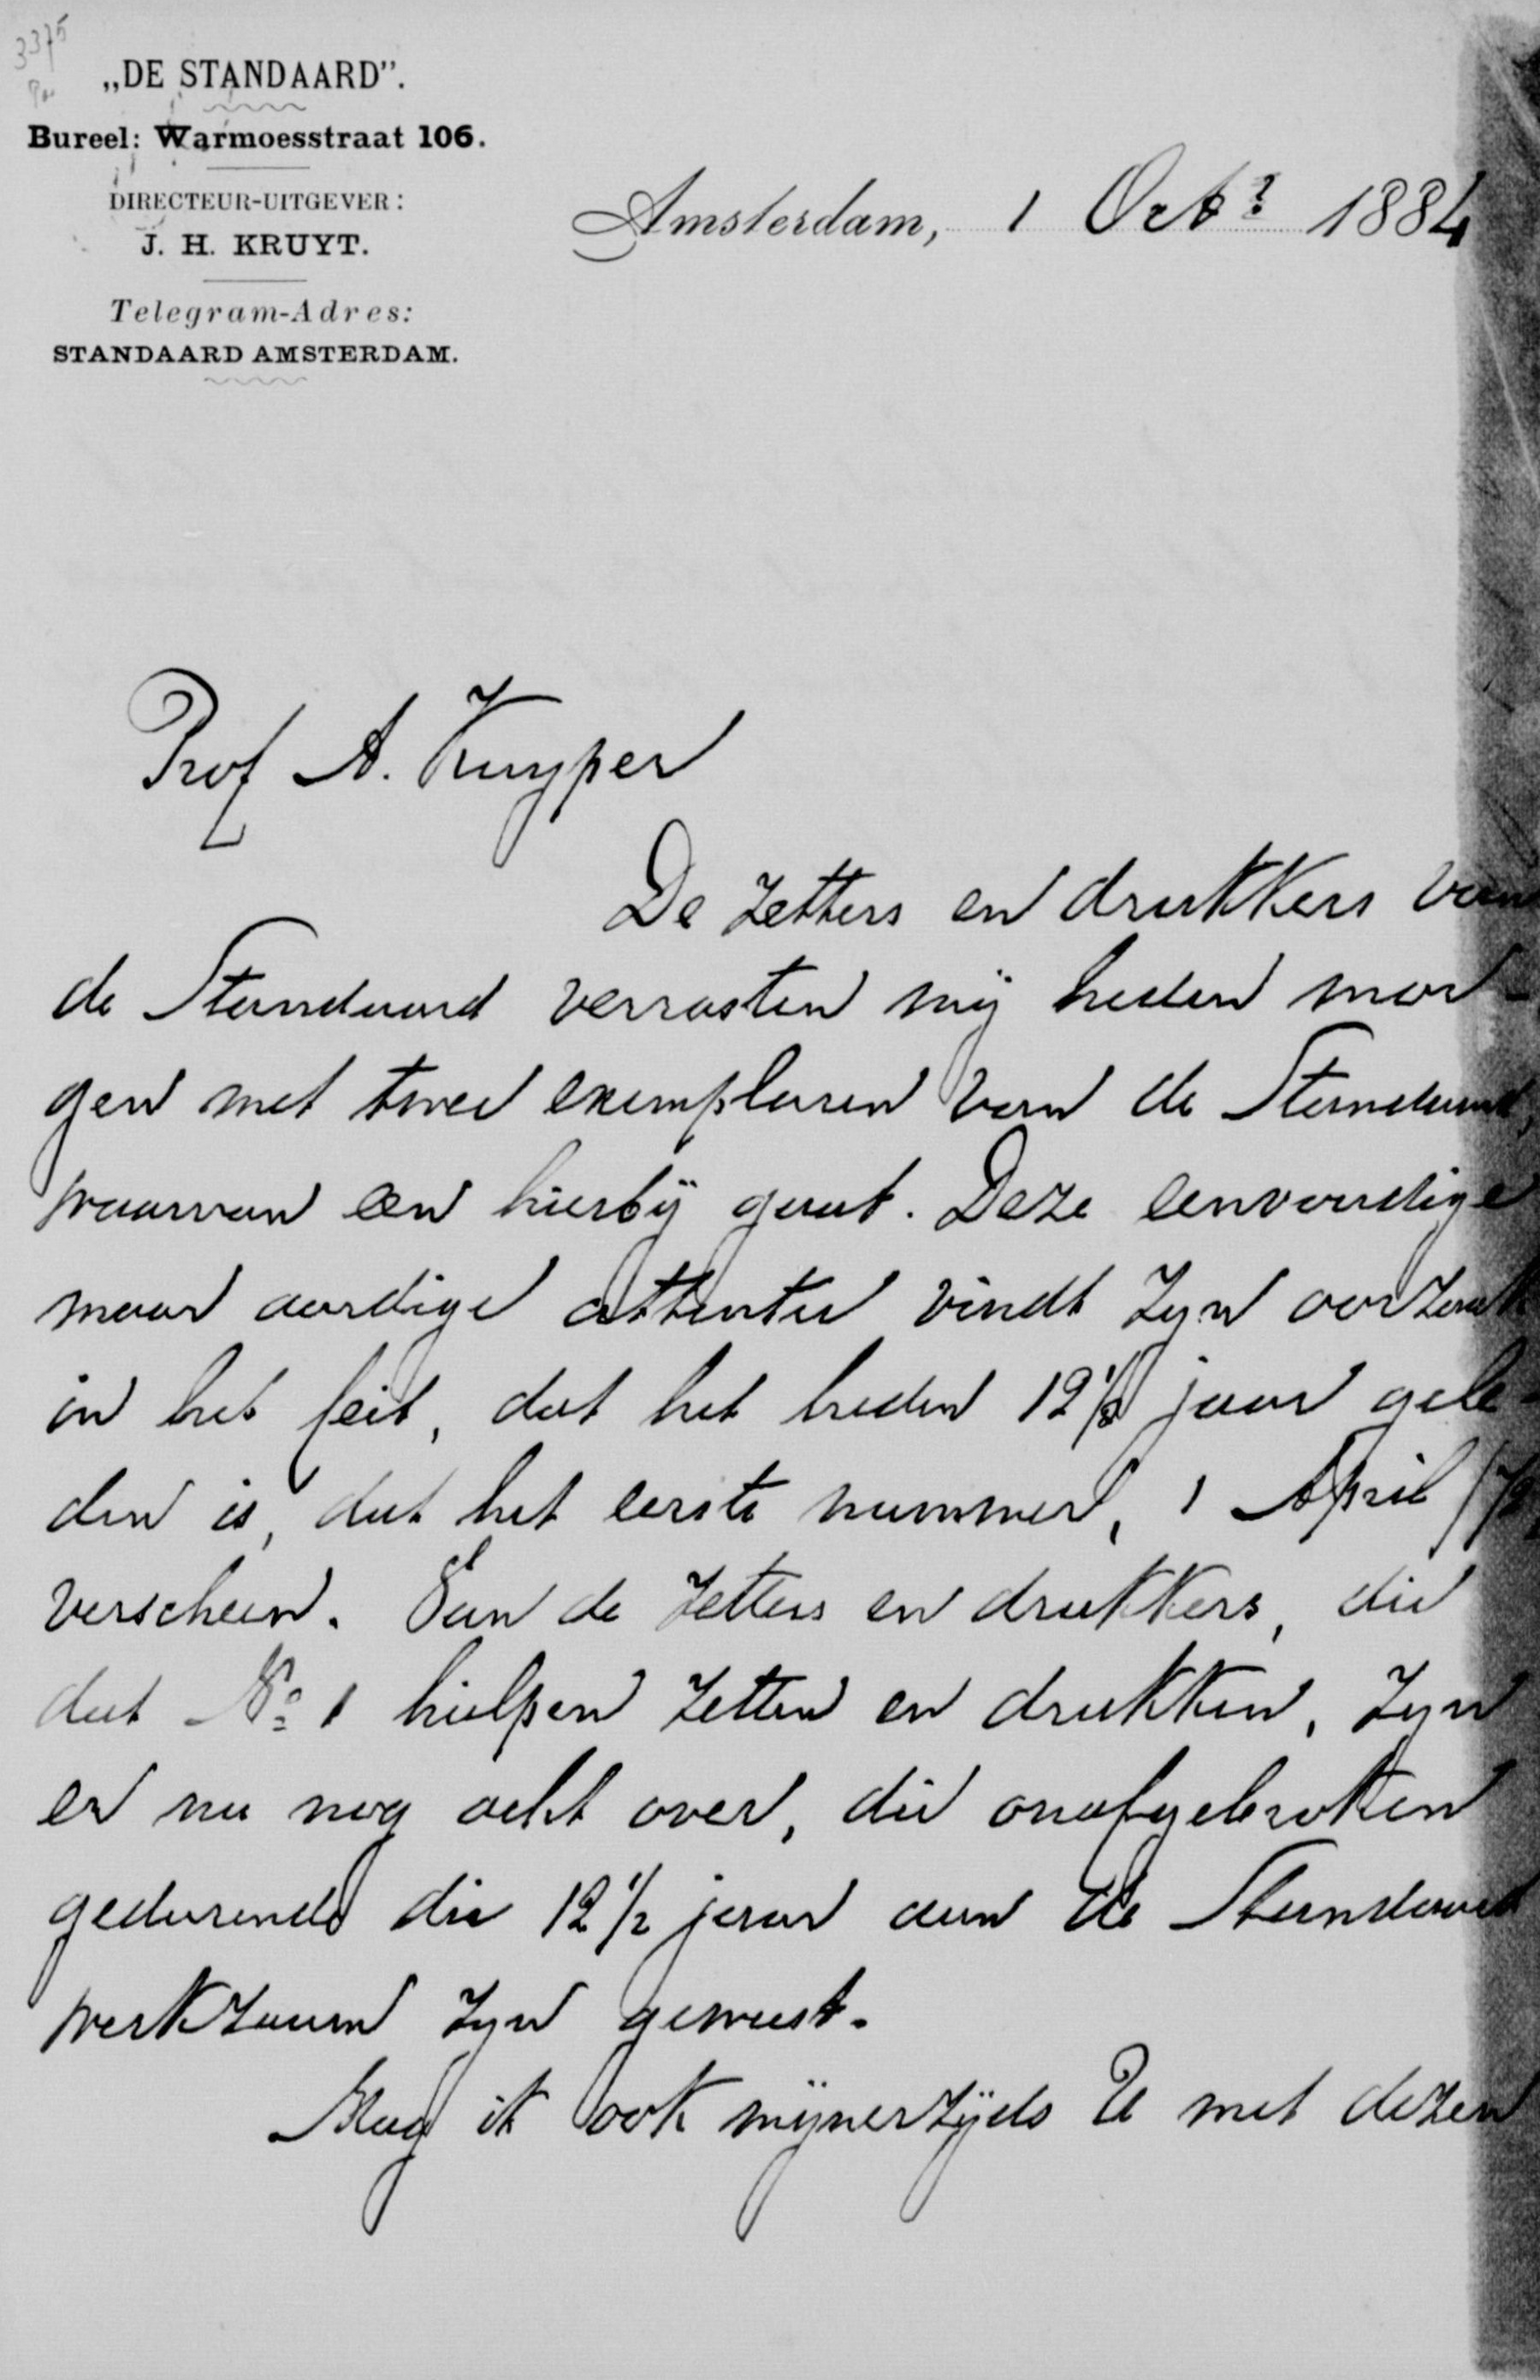 3375
„DE STANDAARD”.
Bureel: Warmoesstraat 106.
DIRECTEUR-UITGEVER:
J. H. KRUYT.
Telegram-Adres:
STANDAARD AMSTERDAM.
Amsterdam, 1 Octr 1884
Prof A. Kuyper
De zetters en drukkers van
de Standaard verrasten mij heden mor-
gen met twee exemplaren van de Standaard,
waarvan een hierbij gaat. Deze eenvoudige
maar aardige attentie vindt zyn oorzaak
in het feit, dat het heden 12 1/2 jaar gele-
den is, dat het eerste nummer, 1 April /72
verscheen. Van de zetters en drukkers, die
dat No 1 hielpen zetten en drukken, zyn
er nu nog acht over, die onafgebroken
gedurende die 12 1/2 jaar aan de Standaard
werkzaam zyn geweest.
Mag ik ook mijnerzijds U met dezen